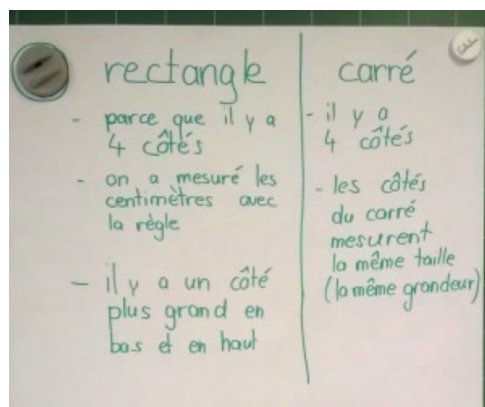 rectangle
- parce que il y a
4 côtés
- on a mesuré les
centimètres avec
la règle
- il y a un côté
plus grand en
bas et en haut
carré
- il y a
4 côtés
- les côtés
du carré
mesurent
la même taille
(la même grandeur)